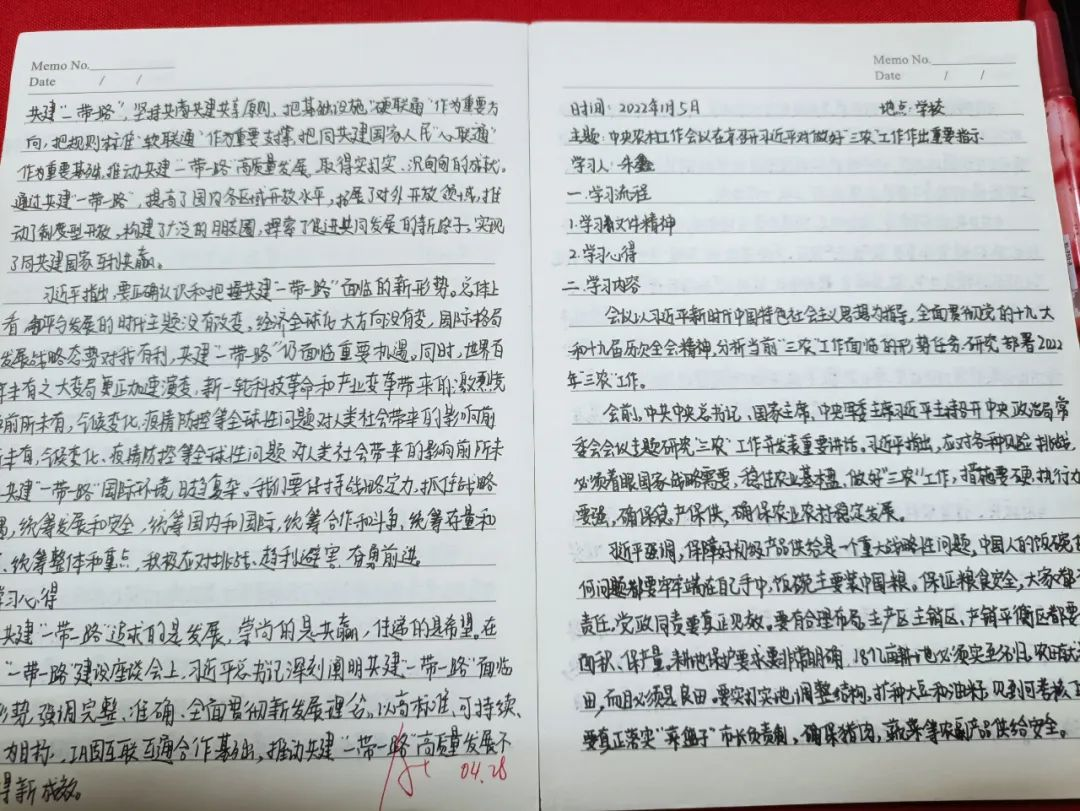 Memo No.
Date / /
共建“一带一路”，坚持共商共建共享原则，把基础设施“硬联通”作为重要方
向，把规则标准“软联通”作为重要支撑，把同共建国家人民“心联通”
作为重要基础，推动共建“一带一路”高质量发展，取得实打实、沉甸甸的成就。
通过共建“一带一路”，提高了国内各区域开放水平，拓展了对外开放领域，推
动了制度型开放，构建了广泛的朋友圈，探索了促进共同发展的新路子，实现
了同共建国家互利共赢。
习近平指出，要正确认识和把握共建“一带一路”面临的新形势。总体上
看，和平与发展的时代主题没有改变，经济全球化大方向没有变，国际格局
发展战略态势对我有利，共建“一带一路”仍面临重要机遇。同时，世界百
年未有之大变局更正加速演变，新一轮科技革命和产业变革带来的激烈竞
前所未有，气候变化、疫情防控等全球性问题对人类社会带来的影响前
未有，气候变化、疫情防控等全球性问题对人类社会带来的影响前所未
共建“一带一路”国际环境日趋复杂。我们要保持战略定力，抓住战略
遇，统筹发展和安全，统筹国内和国际，统筹合作和斗争，统筹存量和
、统筹整体和重点，积极应对挑战，趋利避害，奋勇前进。
学习心得
共建“一带一路”追求的是发展，崇尚的是共赢，传递的是希望。在
“一带一路”建设座谈会上，习近平总书记深刻阐明共建“一带一路”面临
形势，强调完整、准确、全面贯彻新发展理念，以高标准、可持续、
为目标，巩固互联互通合作基础，推动共建“一带一路”高质量发展不
得新成效。
04.28
Memo No.
Date / /
时间：2022年1月5日 地点：学校
主题：中央农村工作会议在京召开习近平对做好“三农”工作作出重要指示
学习人：朱鑫
一.学习流程
1.学习文件精神
2.学习心得
二.学习内容
会议以习近平新时代中国特色社会主义思想为指导，全面贯彻党的十九大
和十九届历次全会精神，分析当前“三农”工作面临的形势任务，研究部署2022
年“三农”工作。
会前，中共中央总书记、国家主席、中央军委主席习近平主持召开中央政治局常
委会会议专题研究“三农”工作并发表重要讲话。习近平指出，应对各种风险挑战，
必须着眼国家战略需要，稳住农业基本盘，做好“三农”工作，措施要硬，执行力
要强，确保稳产保供，确保农业农村稳定发展。
习近平强调，保障好初级产品供给是一个重大战略性问题，中国人的饭碗任
何问题都要牢牢端在自己手中，饭碗主要装中国粮。保证粮食安全，大家都
责任，党政同责要真正见效。要有合理布局，主产区、主销区、产销平衡区都要
面积、保产量。耕地保护要求要非常明确，18亿亩耕地必须实至名归，农田就
田，而且必须是良田。要实打实地调整结构，扩种大豆和油料，见到可考核
要真正落实“菜篮子”市长负责制，确保猪肉、蔬菜等农副产品供给安全。